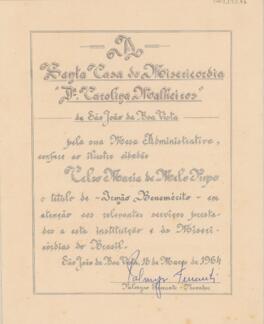 A
Santa Casa de Misericordia
"Dª Carolina Malheiros"
de São João da Boa Vista
pela sua Mesa Administrativa,
confere ao ilustre cidadão
Celso Maria de Mello Pupo
o titulo de -Irmão Benemérito- em
atenção aos relevantes serviços presta-
dos a esta instituição e ás Miseri-
córdias do Brasil.
São João da Boa Vista, 16 de Março de 1964
Palmyro Ferranti
Palmyro Ferranti - Provedor